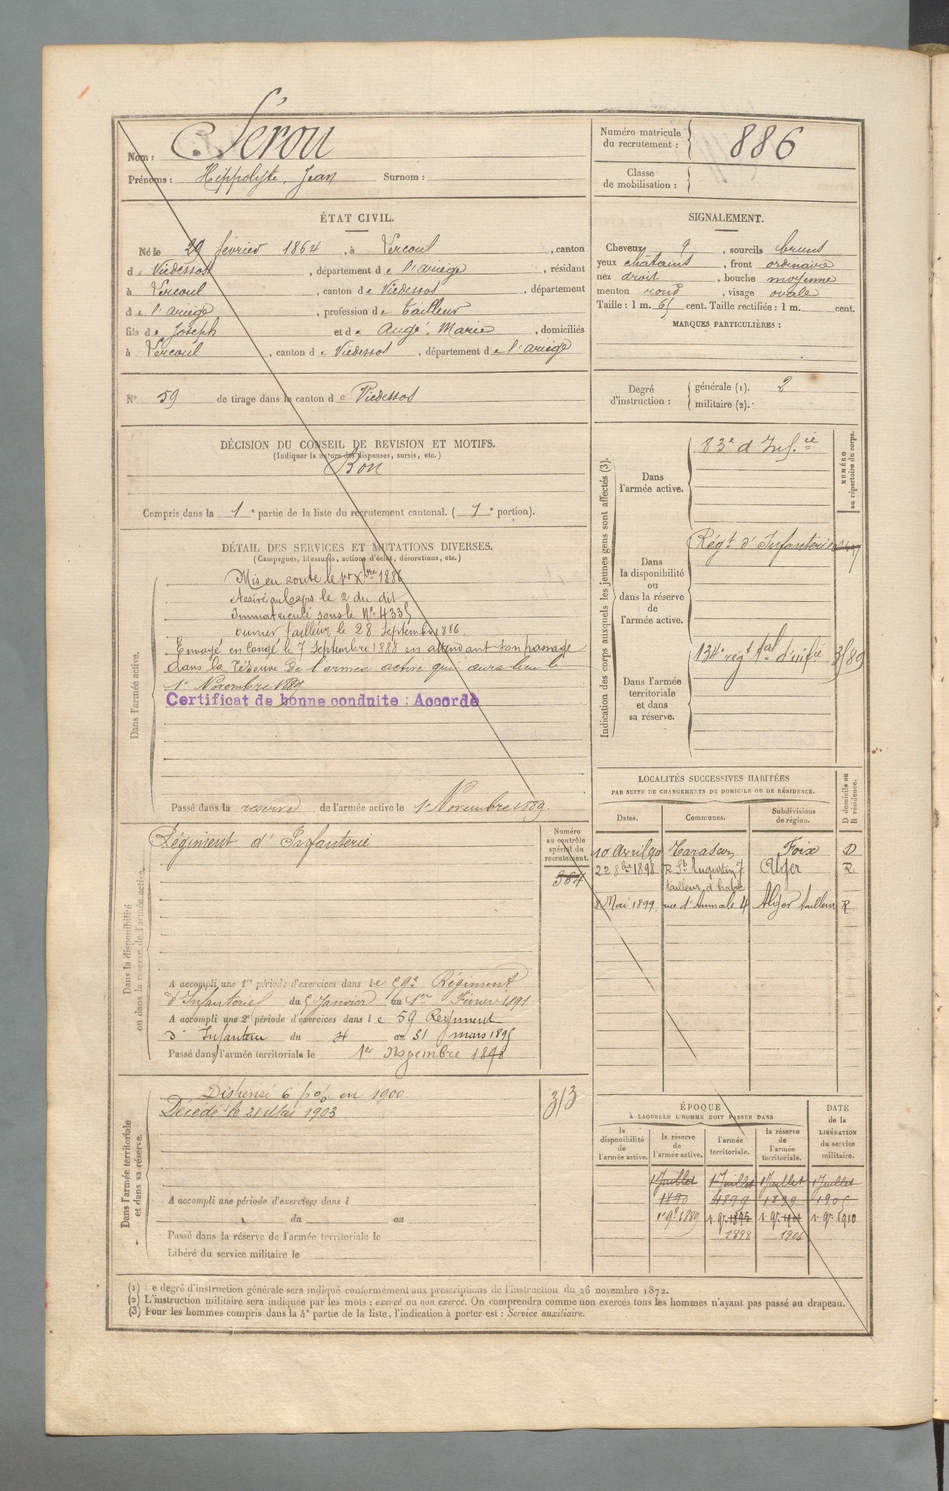 Nom : Serou
Prénoms : Hippolyte, Jean Surnom :
Numéro matricule du recrutement : 886
Classe de mobilisation :
ÉTAT CIVIL.
Né le 29 février 1864, à Vercoul, canton
de Viedessos, département de l'ariège, résidant
à Vercoul, canton de Viedessos, département
de l'ariège, profession de tailleur
fils de Joseph et de Augé, Marie, domiciliés
à Vercoul, canton de Viedessos, département de l'ariège
SIGNALEMENT.
Cheveux d, sourcils bruns
yeux chatains, front ordinaire
nez droit, bouche moyenne
menton rond, visage ovale
Taille : 1 m. 65 cent. Taille rectifiée : 1 m. cent.
MARQUES PARTICULIÈRES :
N° 59 de tirage dans le canton de Viedessos
Degré d'instruction : générale (1). 2
militaire (2).
DÉCISION DU CONSEIL DE REVISION ET MOTIFS.
(Indiquer la nature des dispenses, sursis, etc.)
Bon
Compris dans la 1e partie de la liste du recrutement cantonal. (1e portion).
DÉTAIL DES SERVICES ET MUTATIONS DIVERSES.
(Campagnes, blessures, actions d'éclat, décorations, etc.)
Dans l'armée active.
Mis en route le 1er Xbre 1886
Arrivé au Corps le 2 du dit
Immatriculé sous le N° 4335
ouvrier tailleur le 28 Septembre 1886.
Envoyé en Congé le 7 Septembre 1888 en attendant son passage
dans la Réserve de l'armée active qui aura lieu le
1er Novembre 1889
Certificat de bonne conduite : Accordé
Passé dans la réserve de l'armée active le 1er Novembre 1889.
Indication des corps auxquels les jeunes gens sont affectés (3).
NUMÉRO au répertoire du corps.
Dans l'armée active.
83e d'Inf.ie
Dans la disponibilité ou dans la réserve de l'armée active.
Régt d'Infanterie
Dans l'armée territoriale et dans sa réserve.
134e régt tal d'infie
3/89
LOCALITÉS SUCCESSIVES HABITÉES
PAR SUITE DE CHANGEMENTS DE DOMICILE OU DE RÉSIDENCE.
Dates. Communes. Subdivisions de région. D domicile ou R résidence.
10 Avril 90 Tarascon Foix D
22 8bre 1898 R. St Augustin 7 Alger R
tailleur d'habit
8 Mai 1899. rue d'Aumale 4 Alger tailleur R
Dans la disponibilité ou dans la réserve de l'armée active.
Régiment d'Infanterie
Numéro au contrôle spécial du recrutement.
384
A accompli une 1re période d'exercices dans le 59e Régiment
d'Infanterie du 5 Janvier au 1er Février 1891
A accompli une 2e période d'exercices dans le 59 Regiment
d'Infanterie du 4 au 31 mars 1895
Passé dans l'armée territoriale le 1er Novembre 1898
Dans l'armée territoriale et dans sa réserve.
Dispensé 6 p% en 1900.
Décédé le 21 Mai 1903
313
A accompli une période d'exercices dans l
du au
Passé dans la réserve de l'armée territoriale le
Libéré du service militaire le
ÉPOQUE
À LAQUELLE L'HOMME DOIT PASSER DANS
DATE DE LA LIBÉRATION du service militaire.
la disponibilité de l'armée active. la réserve de l'armée active. l'armée territoriale. la réserve de l'armée territoriale.
1 Juillet 1 Juillet 1 Juillet 1 Juillet
1890 1899 1899 1905
1er 9bre 1889 1er 9bre 1895 1er 9bre 1er 9bre 1910
1898 1904
(1) Le degré d'instruction générale sera indiqué conformément aux prescriptions de l'instruction du 26 novembre 1872.
(2) L'instruction militaire sera indiquée par les mots : exercé ou non exercé. On comprendra comme non exercés tous les hommes n'ayant pas passé au drapeau.
(3) Pour les hommes compris dans la 4e partie de la liste, l'indication à porter est : Service auxiliaire.